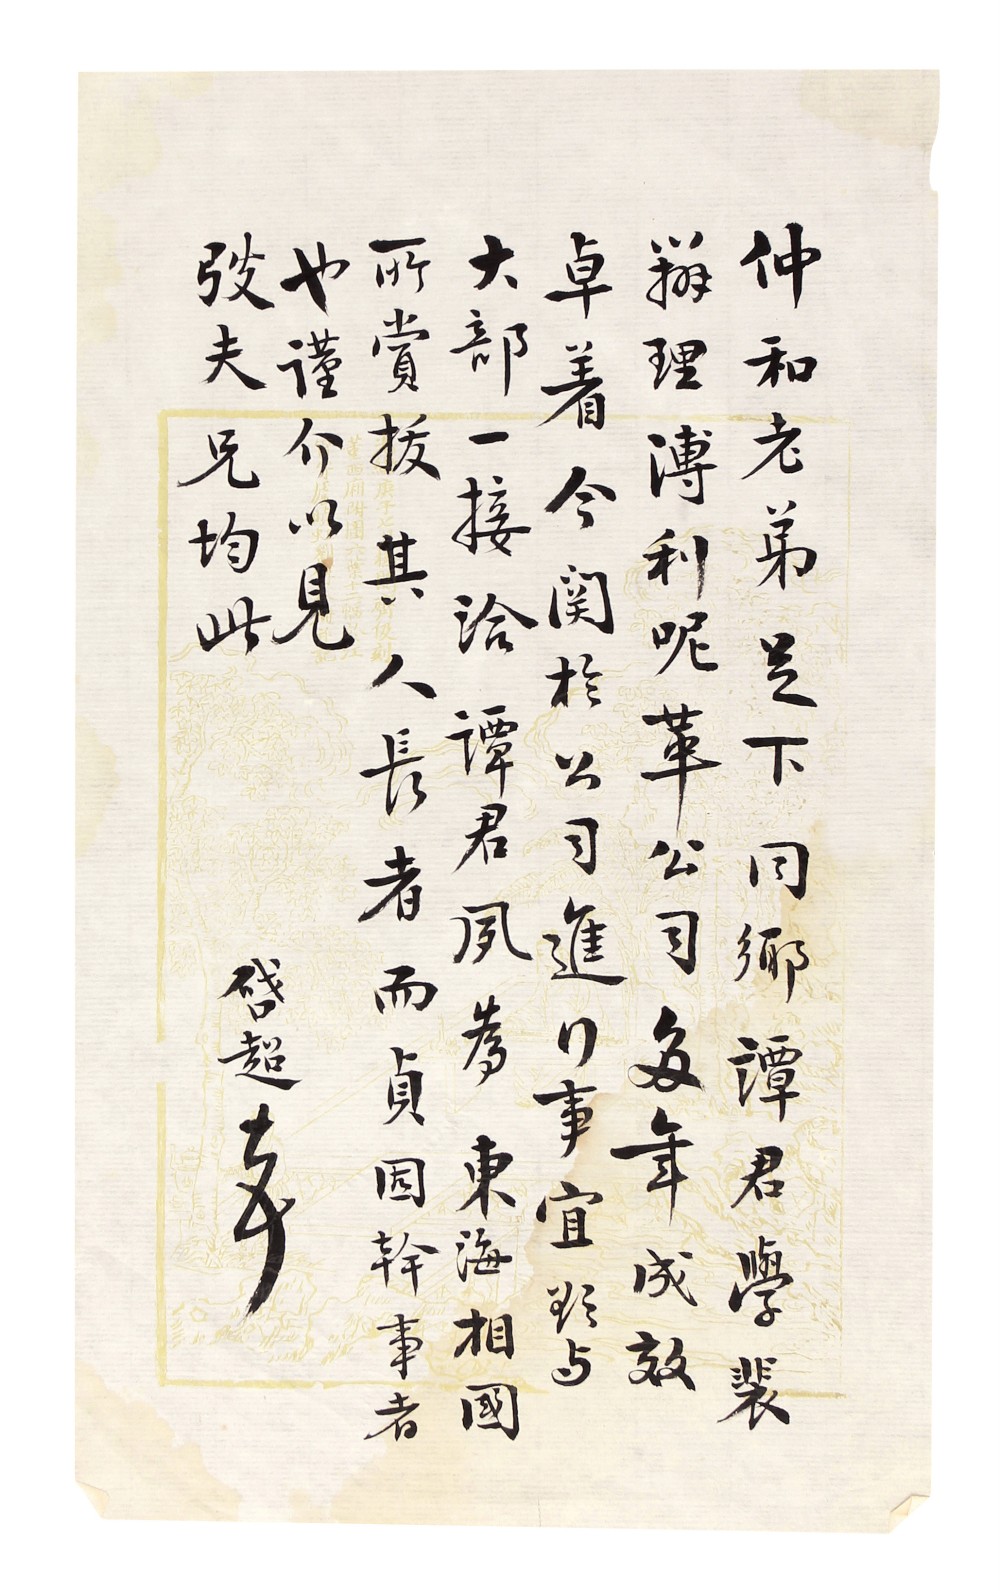 仲和老弟足下同鄉譚君學裴
辦理溥利呢革公司多年成效
卓着今関於公司進行事宜欵与
大部一接洽譚君夙為東海相國
所賞拔其人長者而貞固幹事者
也謹介以見
弢夫兄均此
啓超